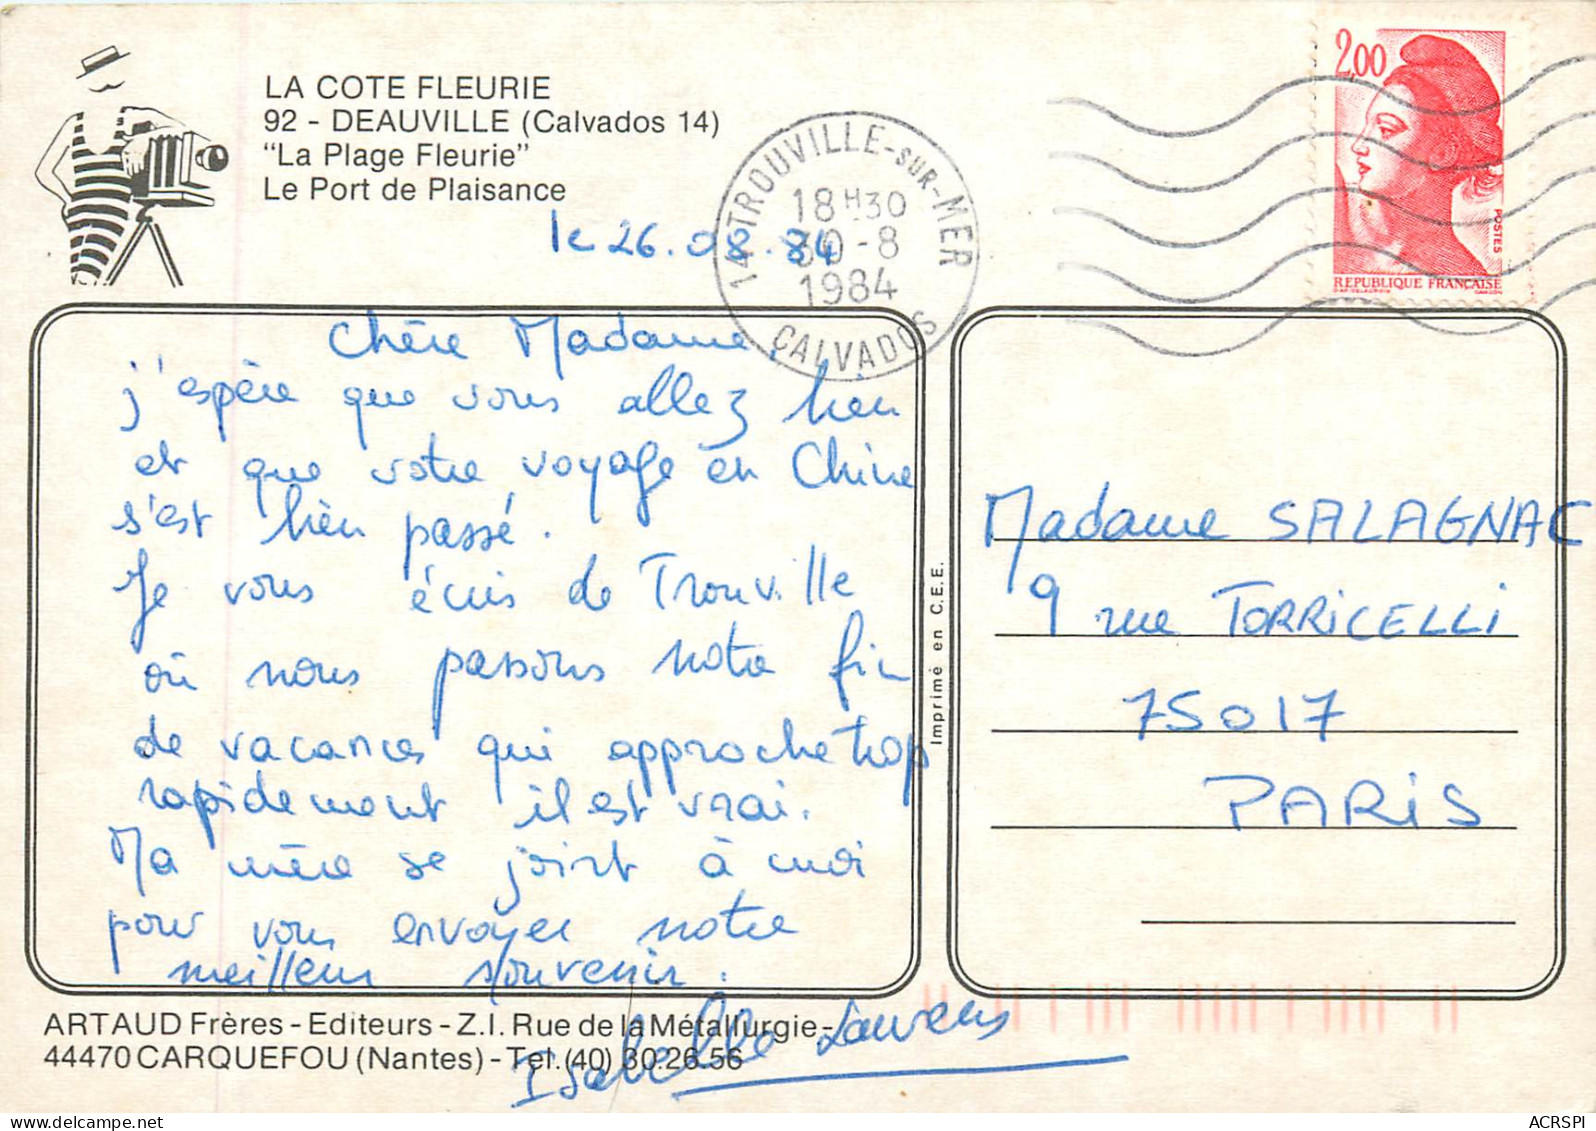 LA COTE FLEURIE
92 - DEAUVILLE (Calvados 14)
"La Plage Fleurie"
Le Port de Plaisance
le 26.08.84
14 TROUVILLE-SUR-MER
18H30
30-8
1984
CALVADOS
2,00
POSTES
REPUBLIQUE FRANÇAISE
Chère Madame,
j'espère que vous allez bien
et que votre voyage en Chine
s'est bien passé.
Je vous écris de Trouville
où nous passons notre fin
de vacances qui approche trop
rapidement il est vrai.
Ma mère se joint à moi
pour vous envoyer notre
meilleur souvenir.
Isabelle Laurens
Imprimé en C.E.E.
Madame SALAGNAC
9 rue TORRiCELLi
75017
PARiS
ARTAUD Frères - Editeurs - Z.I. Rue de la Métallurgie -
44470 CARQUEFOU (Nantes) - Tel. (40) 30.26.56
ACRSPI